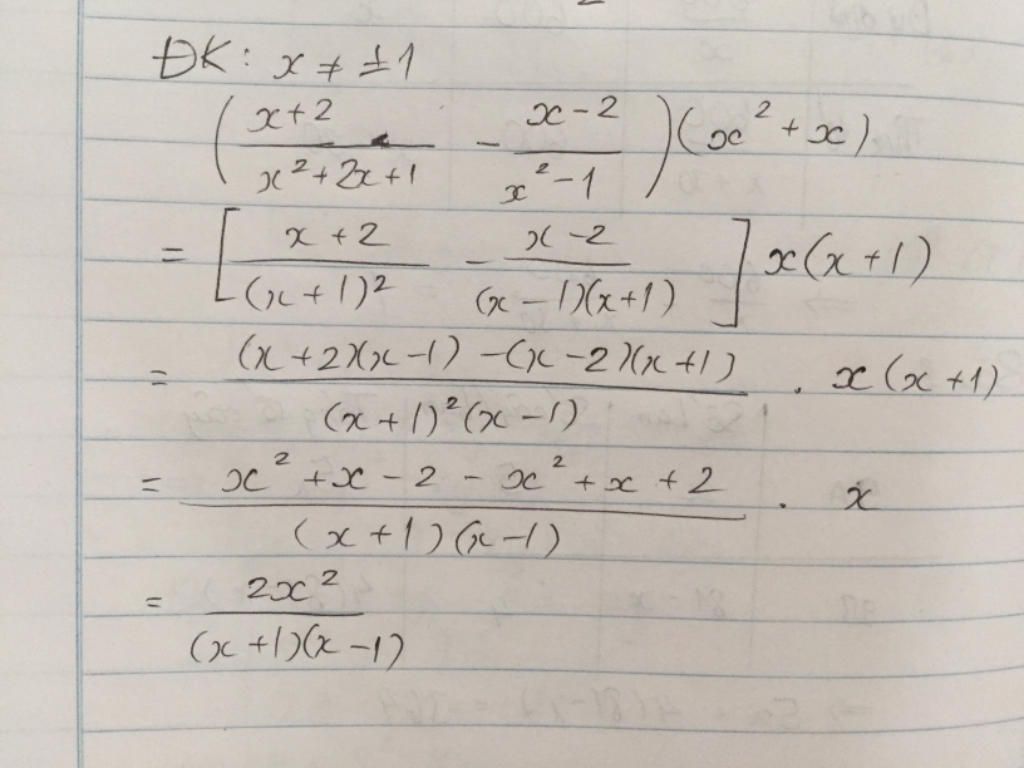 ĐK: x ≠ ±1
(x+2/x²+2x+1 - x-2/x²-1)(x²+x)
= [x+2/(x+1)² - x-2/(x-1)(x+1)] x(x+1)
= (x+2)(x-1) -(x-2)(x+1)/(x+1)²(x-1) . x(x+1)
= x²+x-2-x²+x+2/(x+1)(x-1) . x
= 2x²/(x+1)(x-1)